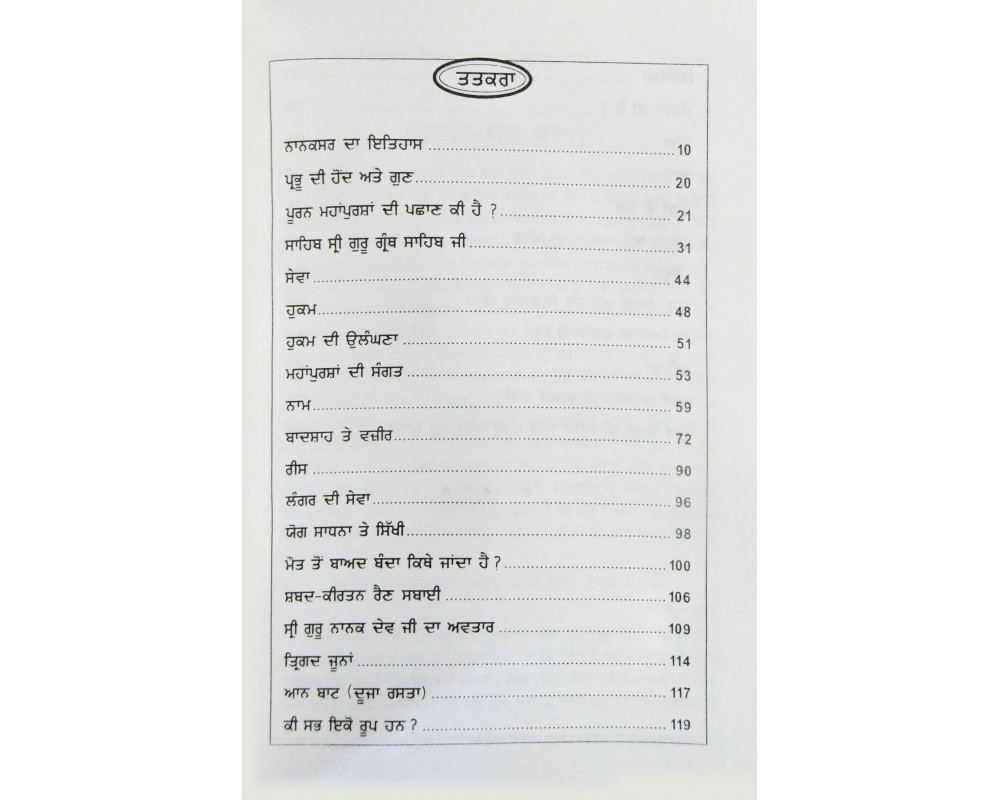 ਤਤਕਰਾ
ਨਾਨਕਸਰ ਦਾ ਇਤਿਹਾਸ ........ 10
ਪ੍ਰਭੂ ਦੀ ਹੋਂਦ ਅਤੇ ਗੁਣ ........ 20
ਪੂਰਨ ਮਹਾਂਪੁਰਸ਼ਾਂ ਦੀ ਪਛਾਣ ਕੀ ਹੈ ? ........ 21
ਸਾਹਿਬ ਸ੍ਰੀ ਗੁਰੂ ਗ੍ਰੰਥ ਸਾਹਿਬ ਜੀ ........ 31
ਸੇਵਾ ........ 44
ਹੁਕਮ ........ 48
ਹੁਕਮ ਦੀ ਉਲੰਘਣਾ ........ 51
ਮਹਾਂਪੁਰਸ਼ਾਂ ਦੀ ਸੰਗਤ ........ 53
ਨਾਮ ........ 59
ਬਾਦਸ਼ਾਹ ਤੇ ਵਜ਼ੀਰ ........ 72
ਰੀਸ ........ 90
ਲੰਗਰ ਦੀ ਸੇਵਾ ........ 96
ਯੋਗ ਸਾਧਨਾ ਤੇ ਸਿੱਖੀ ........ 98
ਮੌਤ ਤੋਂ ਬਾਅਦ ਬੰਦਾ ਕਿਥੇ ਜਾਂਦਾ ਹੈ ? ........ 100
ਸ਼ਬਦ-ਕੀਰਤਨ ਰੈਣ ਸਬਾਈ ........ 106
ਸ੍ਰੀ ਗੁਰੂ ਨਾਨਕ ਦੇਵ ਜੀ ਦਾ ਅਵਤਾਰ ........ 109
ਤ੍ਰਿਗਦ ਜੂਨਾਂ ........ 114
ਆਨ ਬਾਟ (ਦੂਜਾ ਰਸਤਾ) ........ 117
ਕੀ ਸਭ ਇਕੋ ਰੂਪ ਹਨ ? ........ 119